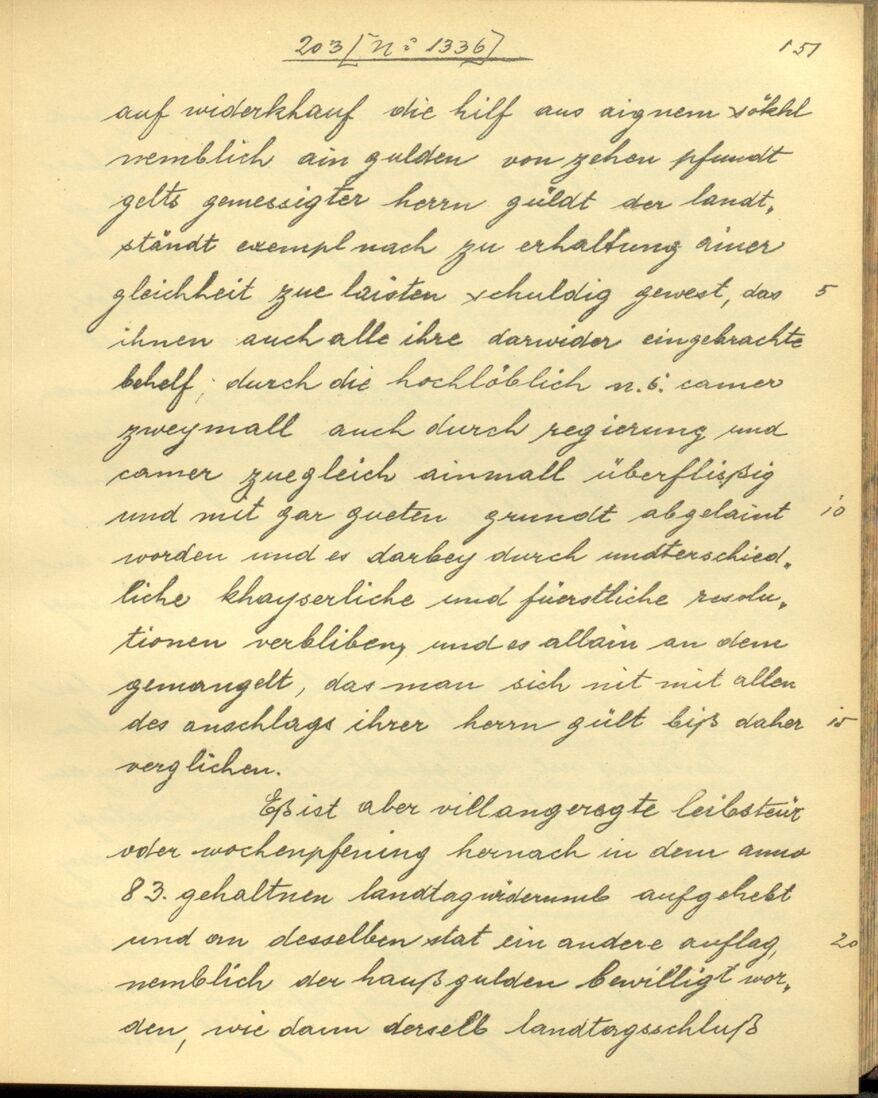 203 [N° 1336] 151
auf widerkhauf die hilf aus aignem säkhl
nemblich ain gulden von zehen pfundt
gelts gemessigter herrn güldt der landt„
ständt exempl nach zu erhaltung ainer
gleichheit zue laisten schuldig gewest, das 5
ihnen auch alle ihre darwider eingebrachte
behelf, durch die hochlöblich n. ö. camer
zweymall auch durch regierung und
camer zuegleich ainmall überflißig
und mit gar gueten grundt abgelaint 10
worden und es darbey durch undterschied„
liche khayserliche und füerstliche resolu„
tionen verbliben, und es allain an dem
gemangelt, das man sich nit mit allen
des anschlags ihrer herrn gült biß daher 15
verglichen.
Eß ist aber villangeregte leibsteür
oder wochenpfening hernach in dem anno
83. gehaltnen landtag widerumb aufgehebt
und an desselben stat ein andere auflag, 20
nemblich der haußgulden bewilligt wor„
den, wie dann derselb landtagsschluß